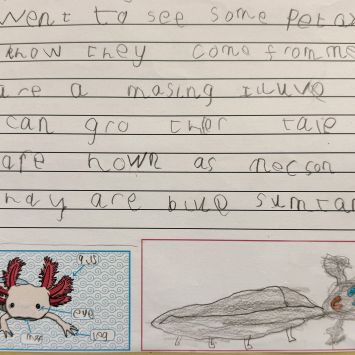 went to see some Petax
know they come from me
are a masing I luve
can gro ther tale
are nown as mecson
thay are blue sumtam
gils
eye
leg